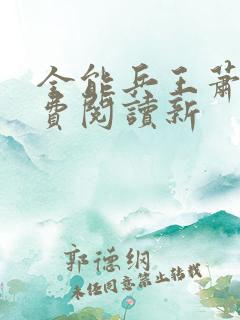 全能兵王萧
费阅读新
郭德纲
未经同意禁止转载